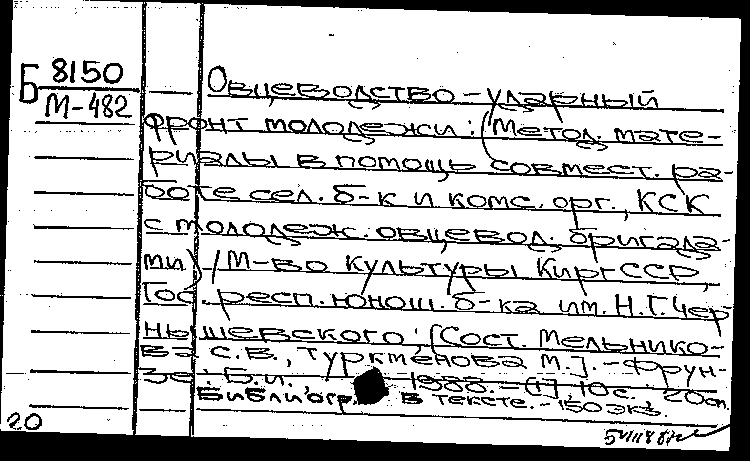 Б 8150
М-482
Овцеводство - ударный
фронт молодежи: (Метод. мате-
риалы в помощь совмест. ра-
боте сел. б-к и комс. орг., КСК
с молодеж. овцевод. бригада-
ми) / М-во культуры КиргССР,
Гос. респ. юнош. б-ка им. Н.Г. Чер
нышевского; [Сост. Мельнико-
ва С.В., Туркменова М.]. - Фрун-
зе: Б.и., 1988. - 10с.; 20см.
Библиогр. в тексте. - 150 экз.
20